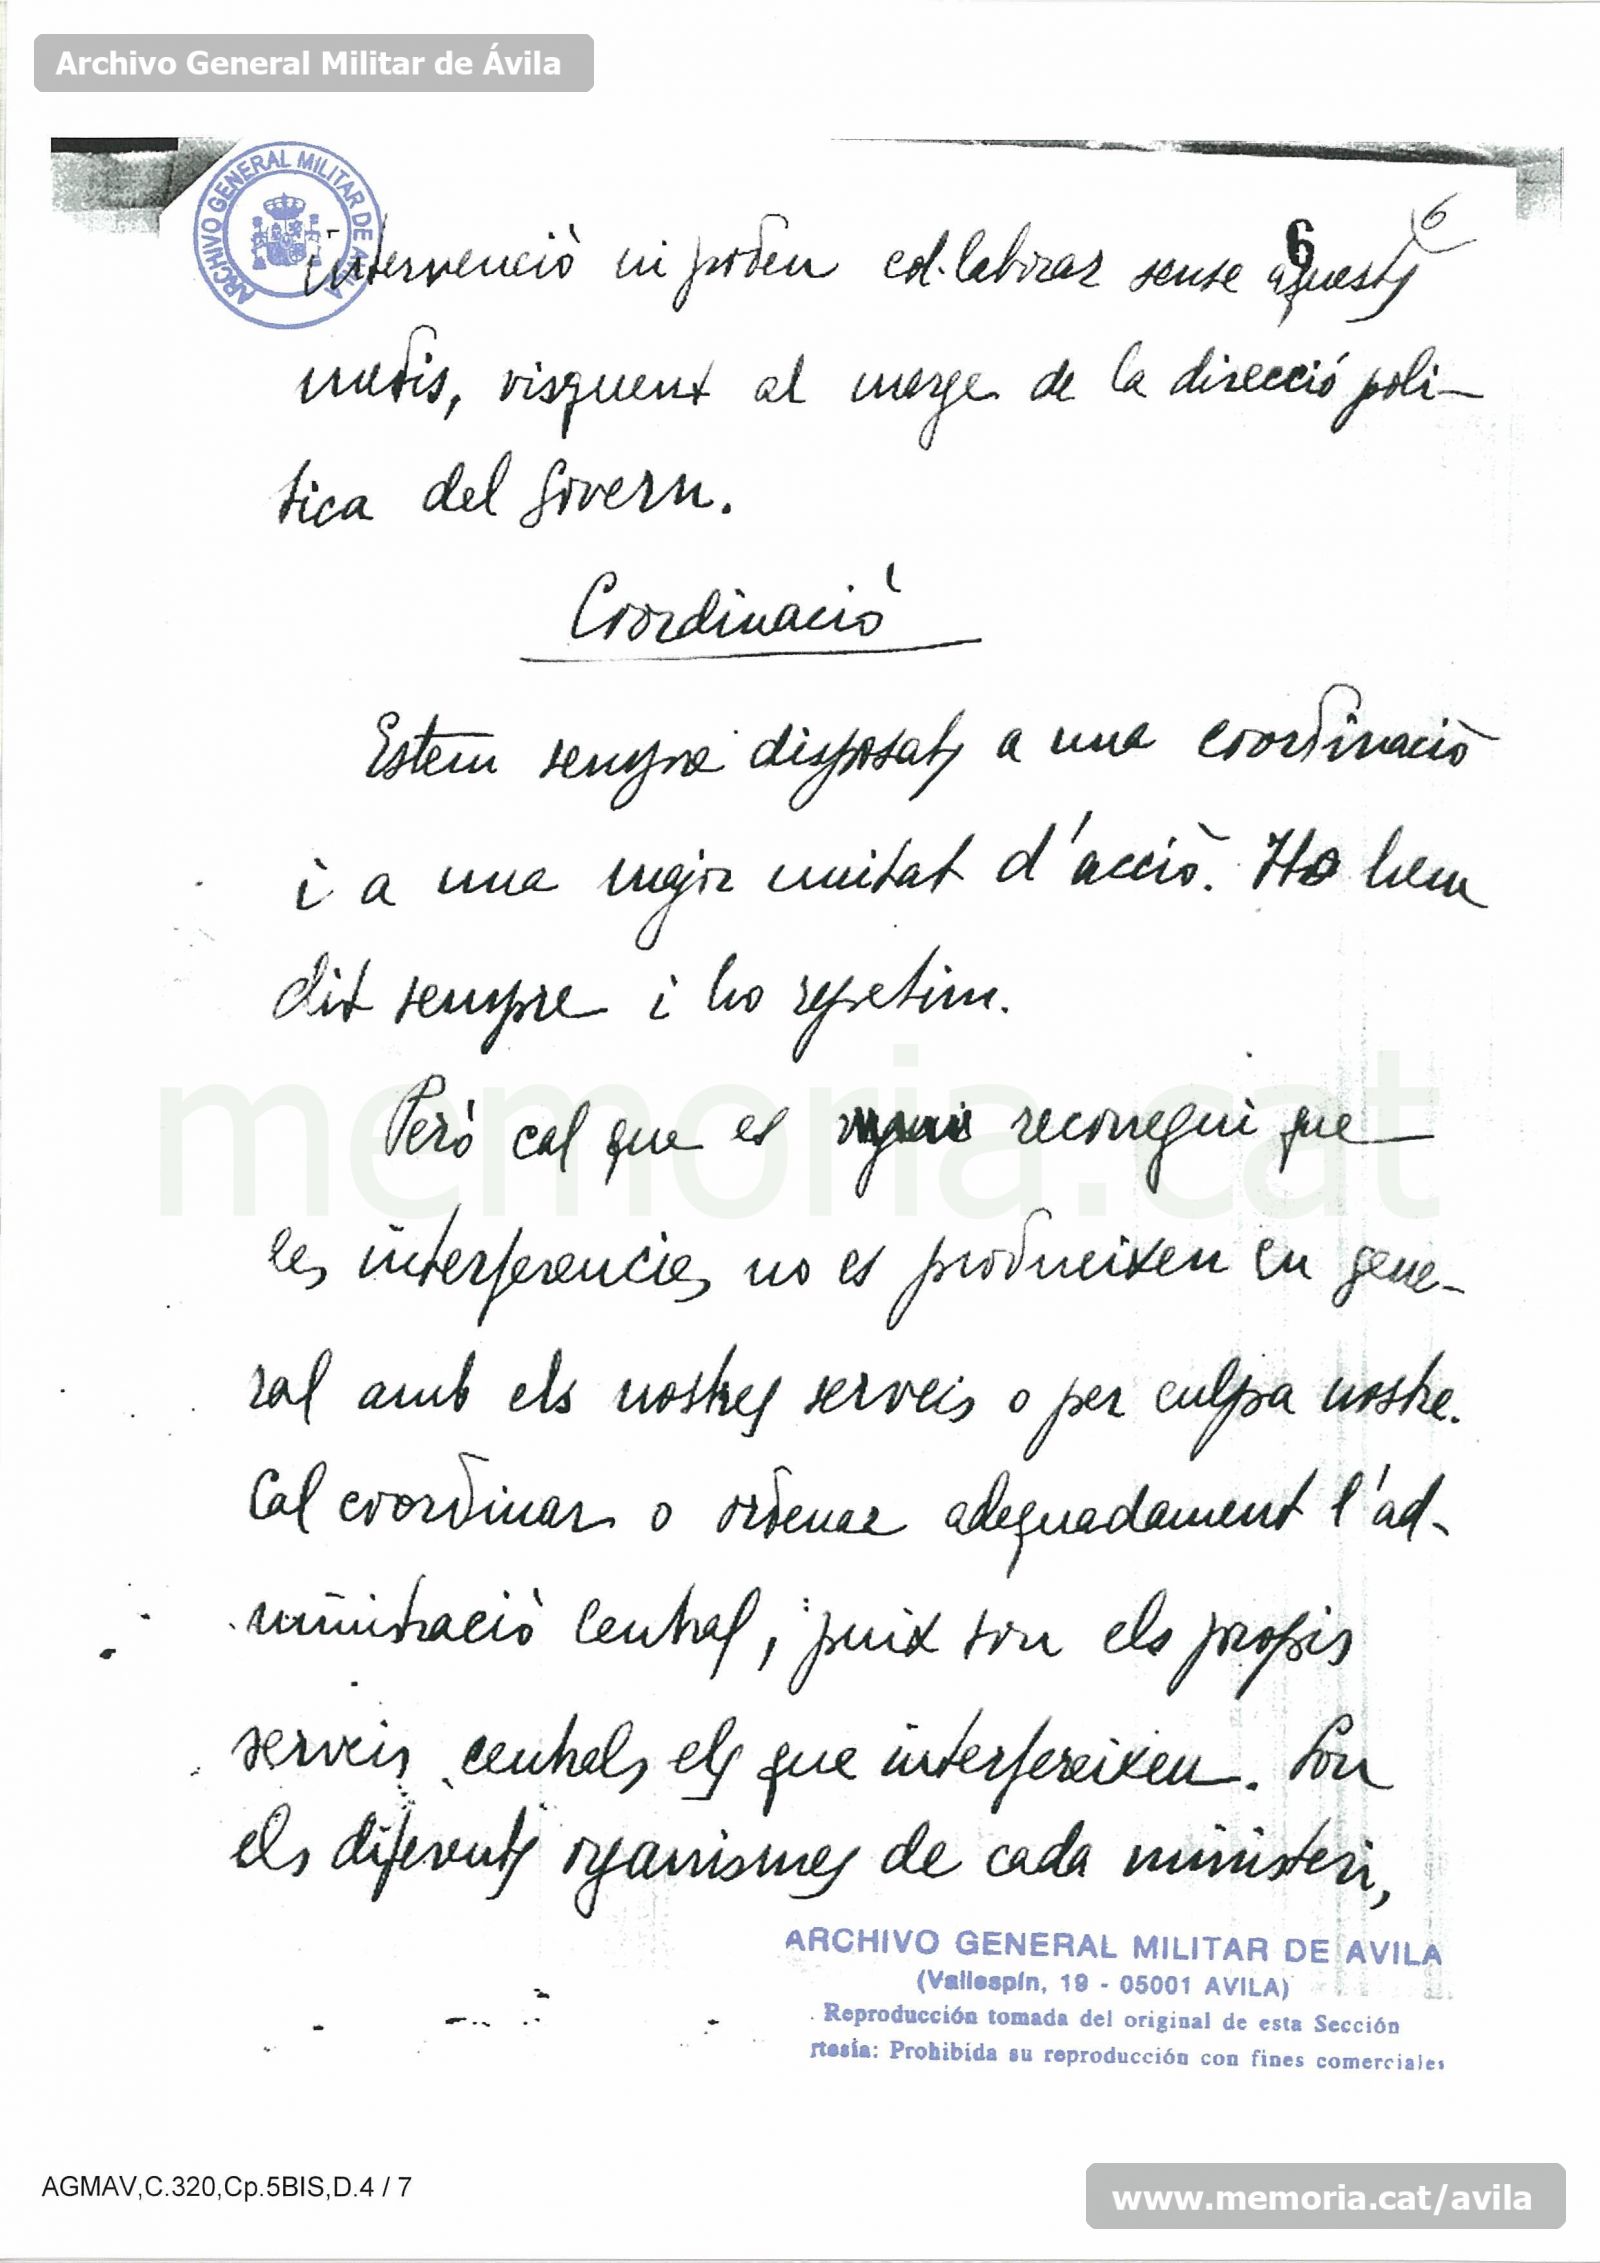 Archivo General Militar de Ávila
ARCHIVO GENERAL MILITAR DE AVILA
6
6
intervenció ni poden col·laborar sense aquests
medis, visquent al marge de la direcció poli-
tica del Govern.
Coordinació
Estem sempre disposats a una coordinació
i a una major unitat d'acció. Ho hem
dit sempre i ho repetim.
Però cal que es reconegui que
les interferencies no es produeixen en gene-
ral amb els nostres serveis o per culpa nostre.
Cal coordinar o ordenar adequadament l'ad-
ministració central, puix son els propis
serveis centrals els que interfereixen. Son
els diferents organismes de cada ministeri,
memoria.cat
ARCHIVO GENERAL MILITAR DE AVILA
(Vallespín, 19 - 05001 AVILA)
Reproducción tomada del original de esta Sección
rtesía: Prohibida su reproducción con fines comerciales
AGMAV,C.320,Cp.5BIS,D.4 / 7
www.memoria.cat/avila